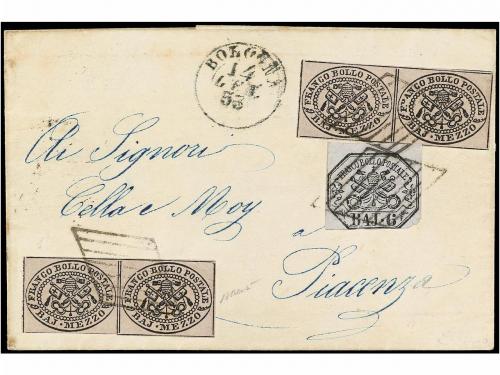 BOLOGNA
14
55
FRANCO BOLLO POSTALE
BAJ · MEZZO
FRANCO BOLLO POSTALE
BAJ · MEZZO
FRANCO BOLLO POSTALE
BAJ. 6
Alli Signori
Cella e Moy
a
Piacenza
FRANCO BOLLO POSTALE
BAJ · MEZZO
FRANCO BOLLO POSTALE
BAJ · MEZZO